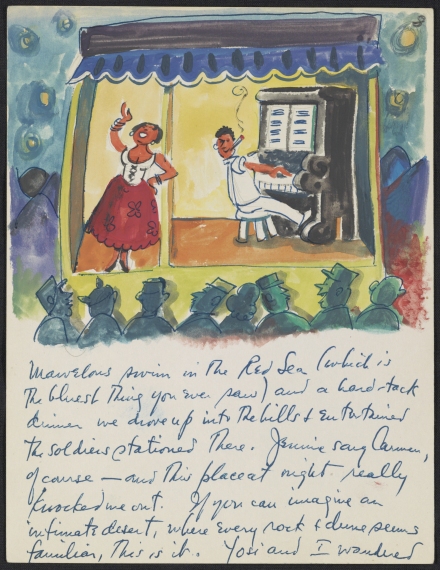 3
Marvelous swim in the Red Sea (which is
the bluest thing you ever saw) and a hard-tack
dinner we drove up into the hills & entertained
the soldiers stationed there. Jennie sang Carmen,
of course — and this place at night really
knocked me out. If you can imagine an
intimate desert, where every rock & dune seems
familiar, this is it. Yosi and I wandered